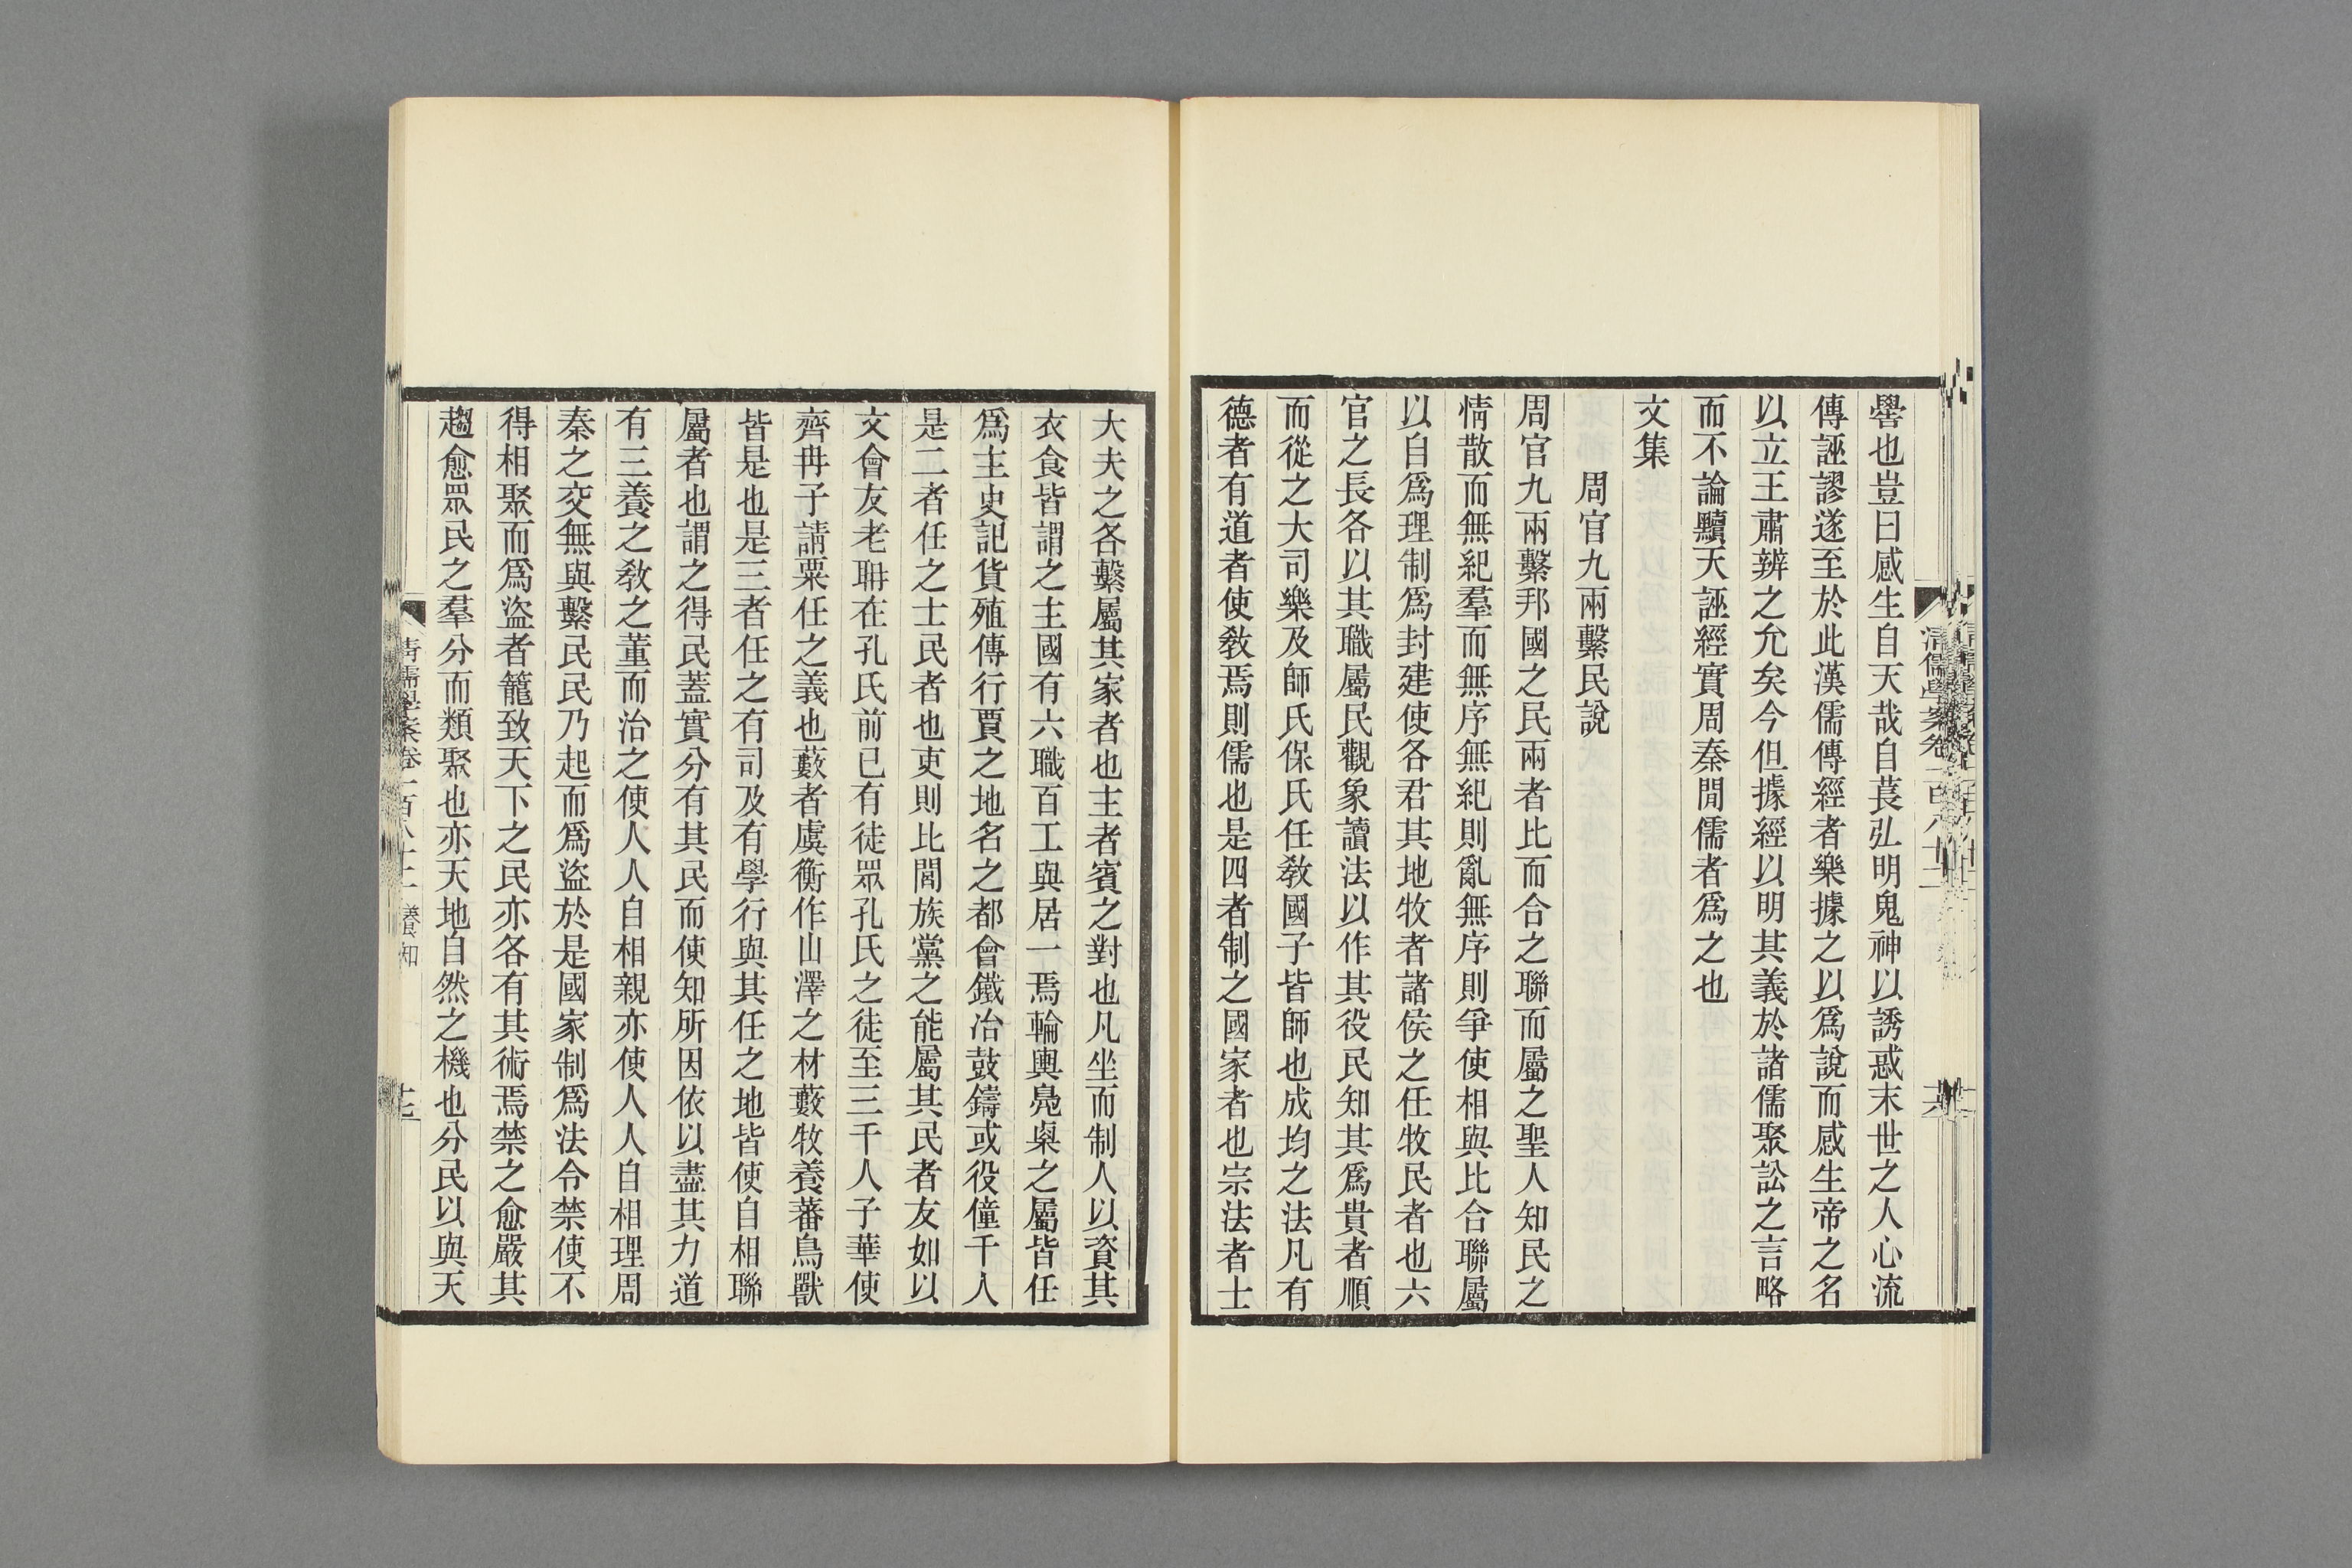 嚳也豈曰感生自天哉自萇弘明鬼神以誘惑末世之人心流
傳誣謬遂至於此漢儒傳經者樂據之以爲說而感生帝之名
以立王肅辨之允矣今但據經以明其義於諸儒聚訟之言略
而不論黷天誣經實周秦閒儒者爲之也
文集
周官九兩繫民說
周官九兩繫邦國之民兩者比而合之聯而屬之聖人知民之
情散而無紀羣而無序無紀則亂無序則爭使相與比合聯屬
以自爲理制爲封建使各君其地牧者諸侯之任牧民者也六
官之長各以其職屬民觀象讀法以作其役民知其爲貴者順
而從之大司樂及師氏保氏任敎國子皆師也成均之法凡有
德者有道者使敎焉則儒也是四者制之國家者也宗法者士
大夫之各繫屬其家者也主者賓之對也凡坐而制人以資其
衣食皆謂之主國有六職百工與居一焉輪輿鳧㮚之屬皆任
爲主史記貨殖傳行賈之地名之都會鐵冶鼓鑄或役僮千人
是二者任之士民者也吏則比閭族黨之能屬其民者友如以
文會友老聃在孔氏前已有徒眾孔氏之徒至三千人子華使
齊冉子請粟任之義也藪者虞衡作山澤之材藪牧養蕃鳥獸
皆是也是三者任之有司及有學行與其任之地皆使自相聯
屬者也謂之得民蓋實分有其民而使知所因依以盡其力道
有三養之敎之董而治之使人人自相親亦使人人自相理周
秦之交無與繫民民乃起而爲盜於是國家制爲法令禁使不
得相聚而爲盜者籠致天下之民亦各有其術焉禁之愈嚴其
趨愈眾民之羣分而類聚也亦天地自然之機也分民以與天
清儒學案卷一百八十二 養知